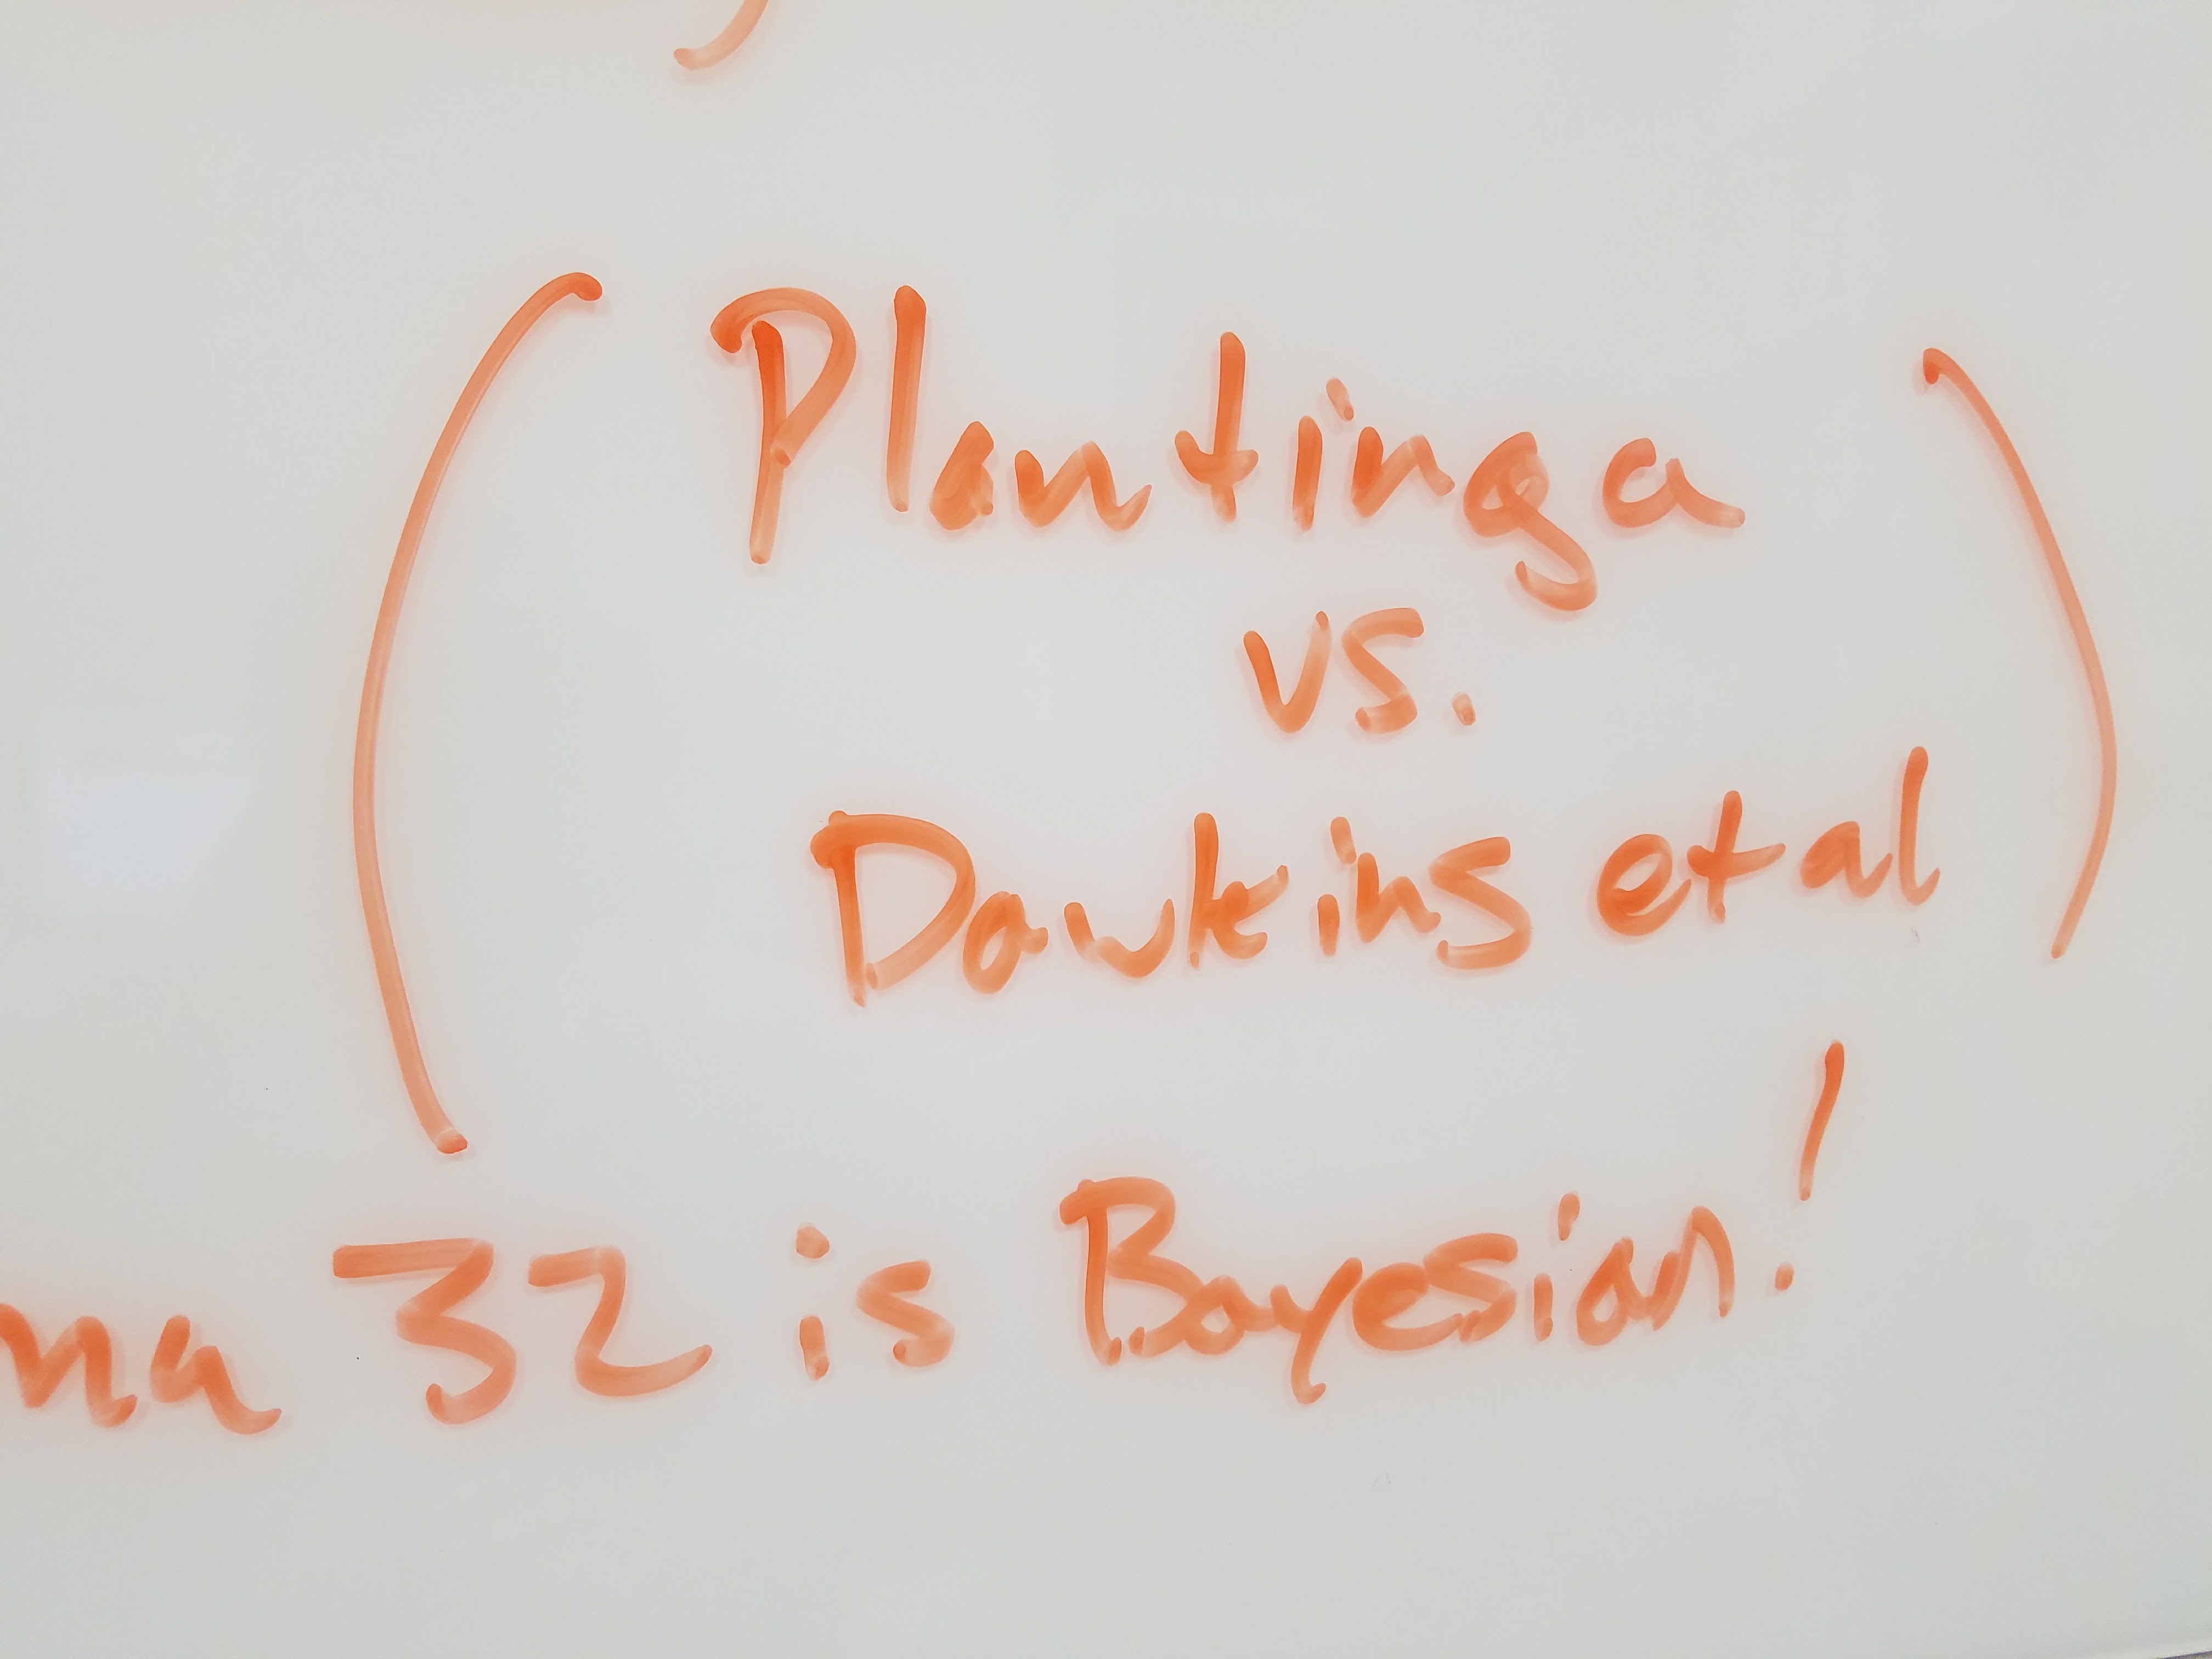 ( Plantinga
vs.
Dawkins et al )
na 32 is Bayesian!